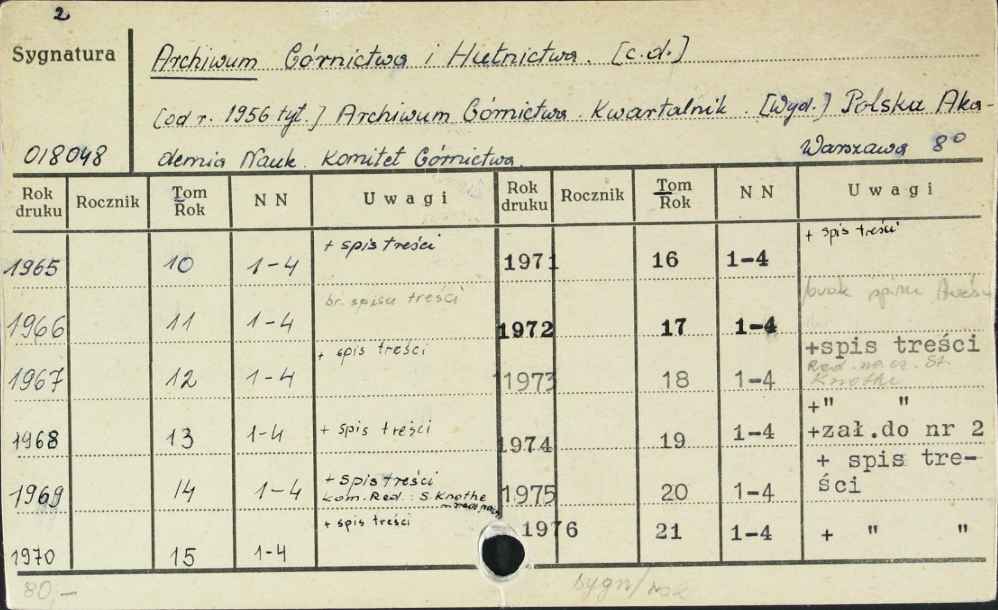 2
Sygnatura
Archiwum Górnictwa i Hutnictwa. [c.d.]
[od r. 1956 tyt.] Archiwum Górnictwa. Kwartalnik. [Wyd.] Polska Aka-
018048 demia Nauk. Komitet Górnictwa. Warszawa 8°
Rok druku Rocznik Tom Rok NN Uwagi Rok druku Rocznik Tom Rok NN Uwagi
1965 10 1-4 + spis treści 1971 16 1-4 + spis treści
1966 11 1-4 br. spisu treści 1972 17 1-4 brak spisu treści
1967 12 1-4 + spis treści 1973 18 1-4 +spis treści
Red. nacz. St.
Knothe
1968 13 1-4 + spis treści 1974 19 1-4 +" "
+zał.do nr 2
1969 14 1-4 + spis treści
kom. Red.: S. Knothe
1975 20 1-4 + spis tre-
ści
1970 15 1-4 + spis treści 1976 21 1-4 + " "
80,-
sygn/rok